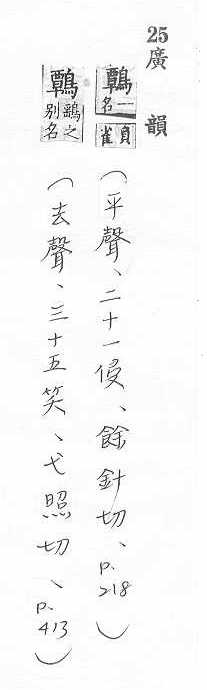 25廣韻
鷣一名負雀（平聲、二十一侵、餘針切、p.218）
鷣鷂之别名（去聲、三十五笑、弋照切、p.413）